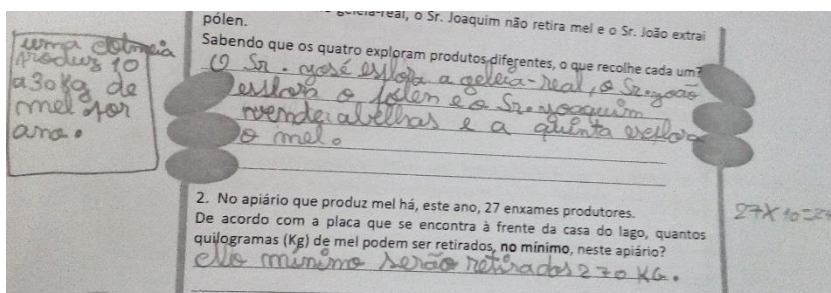 geleia-real, o Sr. Joaquim não retira mel e o Sr. João extrai
pólen.
Sabendo que os quatro exploram produtos diferentes, o que recolhe cada um?
O Sr. José esplora a geleia-real, o Sr. João
esplora o polen e o Sr. Joaquim
vende abelhas e a quinta esplora
o mel.
uma colmeia
produz 10
a 30 kg de
mel por
ano.
2. No apiário que produz mel há, este ano, 27 enxames produtores.
De acordo com a placa que se encontra à frente da casa do lago, quantos
quilogramas (Kg) de mel podem ser retirados, no mínimo, neste apiário?
No mínimo serão retirados 270 KG.
27 X 10 = 27